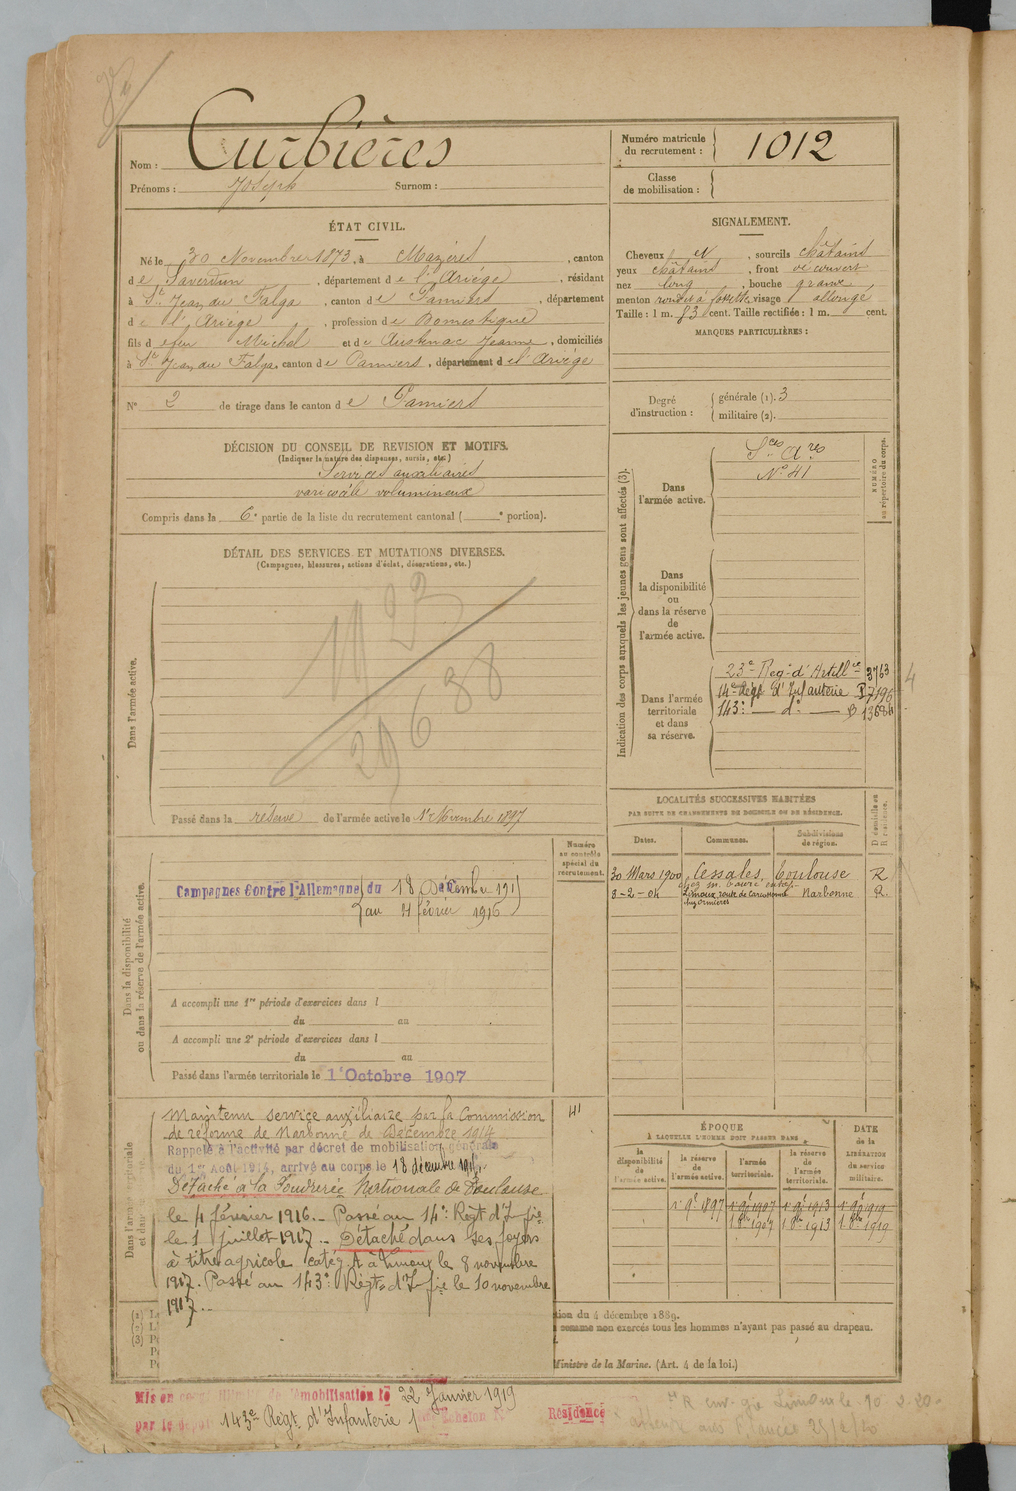 Nom : Curbières
Prénoms : Joseph Surnom :
Numéro matricule du recrutement : 1012
Classe de mobilisation :
ÉTAT CIVIL.
Né le 30 Novembre 1873, à Mazères, canton
de Saverdun, département de l'Ariège, résidant
à St Jean du Falga, canton de Pamiers, département
de l'Ariège, profession de Domestique
fils de feu Michel et de Jeanne, domiciliés
à St Jean du Falga, canton de Pamiers, département de l'Ariège
No 2 de tirage dans le canton de Pamiers
DÉCISION DU CONSEIL DE REVISION ET MOTIFS.
(Indiquer la nature des dispenses, sursis, etc.)
Services auxiliaires
varicocèle volumineux
Compris dans la 6e partie de la liste du recrutement cantonal ( e portion).
SIGNALEMENT.
Cheveux et, sourcils châtains
yeux châtains, front découvert
nez long, bouche grande
menton rond et à fossette visage allongé
Taille : 1 m. 83 cent. Taille rectifiée : 1 m. cent.
MARQUES PARTICULIÈRES :
Degré d'instruction : générale (1). 3
militaire (2).
DÉTAIL DES SERVICES ET MUTATIONS DIVERSES.
(Campagnes, blessures, actions d'éclat, décorations, etc.)
Dans l'armée active.
1123
29638
Passé dans la réserve de l'armée active le 1er Novembre 1897
Indication des corps auxquels les jeunes gens sont affectés (3).
NUMÉRO au répertoire du corps.
Dans l'armée active.
Sces Ares
No 41
Dans la disponibilité ou dans la réserve de l'armée active.
Dans l'armée territoriale et dans sa réserve.
23e Regt d'Artillie 3763
14e Régt d'Infanterie 17196
143e — do — 13684
4
LOCALITÉS SUCCESSIVES HABITÉES
PAR SUITE DE CHANGEMENTS DE DOMICILE OU DE RÉSIDENCE.
Dates. Communes. Subdivisions de région. D domicile ou R résidence.
30 Mars 1900 Cessales Toulouse R
8-2-04 Limoux, route de Carcassonne Narbonne R.
Dans la disponibilité ou dans la réserve de l'armée active.
Numéro au contrôle spécial du recrutement.
Campagnes Contre l'Allemagne du 18 Décembre 191
au 4 février 1916
A accompli une 1re période d'exercices dans l
du au
A accompli une 2e période d'exercices dans l
du au
Passé dans l'armée territoriale le 1er Octobre 1907
41
Maintenu service auxiliaire par la Commission
de réforme de Narbonne de Décembre 1914
Rappelé à l'activité par décret de mobilisation générale
du 1er Août 1914, arrivé au corps le 18 décembre
Détaché à la Poudrerie Nationale de Toulouse
le 4 février 1916. Passé au 14e Régt d'Inf ie
le 1 juillet 1917. Détaché dans ses foyers
à titre agricole catég. A à Limoux le 8 novembre
1917. Passé au 143e Régt d'Inf ie le 10 novembre
1917.
ÉPOQUE
À LAQUELLE L'HOMME DOIT PASSER DANS
la disponibilité de l'armée active. la réserve de l'armée active. l'armée territoriale. la réserve de l'armée territoriale.
DATE de la LIBÉRATION du service militaire.
1r 9e 1897 1r 9e 1907 1r 9e 1913 1r 9e 1919
1r 8e 1907 1r 8e 1913 1r 8e 1919
tion du 4 décembre 1889.
comme non exercés tous les hommes n'ayant pas passé au drapeau.
Ministre de la Marine. (Art. 4 de la loi.)
Mis en congé illimité de démobilisation le 22 Janvier 1919
par le dépôt 143e Régt d'Infanterie Echelon
Résidence